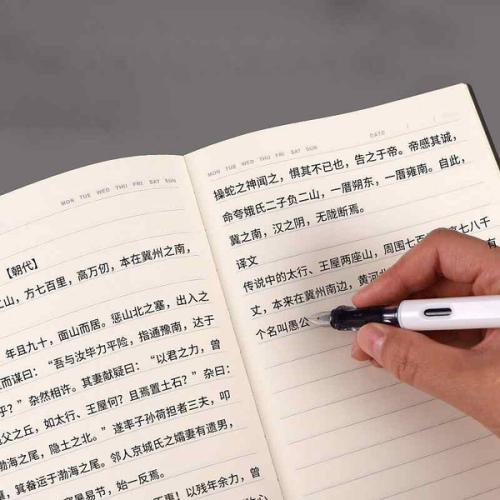 MON TUE WED THU FRI SAT SUN
【朝代】
二山，方七百里，高万仞，本在冀州之南，
年且九十，面山而居。惩山北之塞，出入之
而谋曰：“吾与汝毕力平险，指通豫南，达于
乎？”杂然相许。其妻献疑曰：“以君之力，曾
父之丘，如太行、王屋何？且焉置土石？”杂曰：
渤海之尾，隐土之北。”遂率子孙荷担者三夫，叩
，箕畚运于渤海之尾。邻人京城氏之孀妻有遗男，
易节，始一反焉。
！以残年余力，曾
MON TUE WED THU FRI SAT SUN
DATE
操蛇之神闻之，惧其不已也，告之于帝。帝感其诚，
命夸娥氏二子负二山，一厝朔东，一厝雍南。自此，
冀之南，汉之阴，无陇断焉。
译文
传说中的太行、王屋两座山，周围七百里，高七八千
丈，本来在冀州南边，黄河北
个名叫愚公